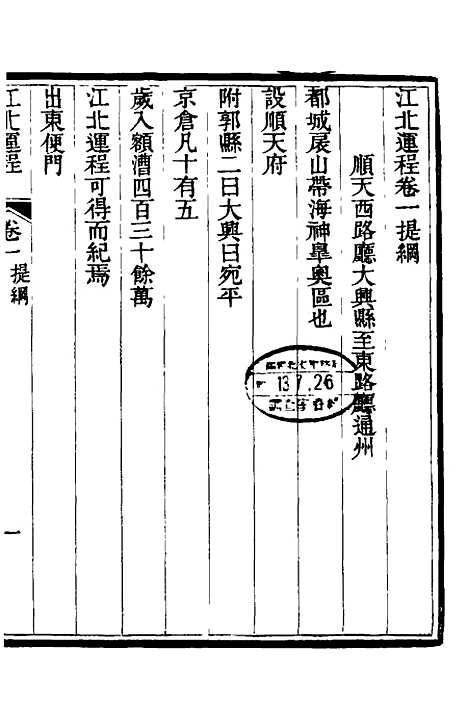 江北運程卷一提綱
順天西路廳大興縣至東路廳通州
都城扆山帶海神臯奧區也
設順天府
附郭縣二曰大興曰宛平
京倉凡十有五
歲入額漕四百三十餘萬
江北運程可得而紀焉
出東便門
江北運程
卷一提綱
一
13.7.26